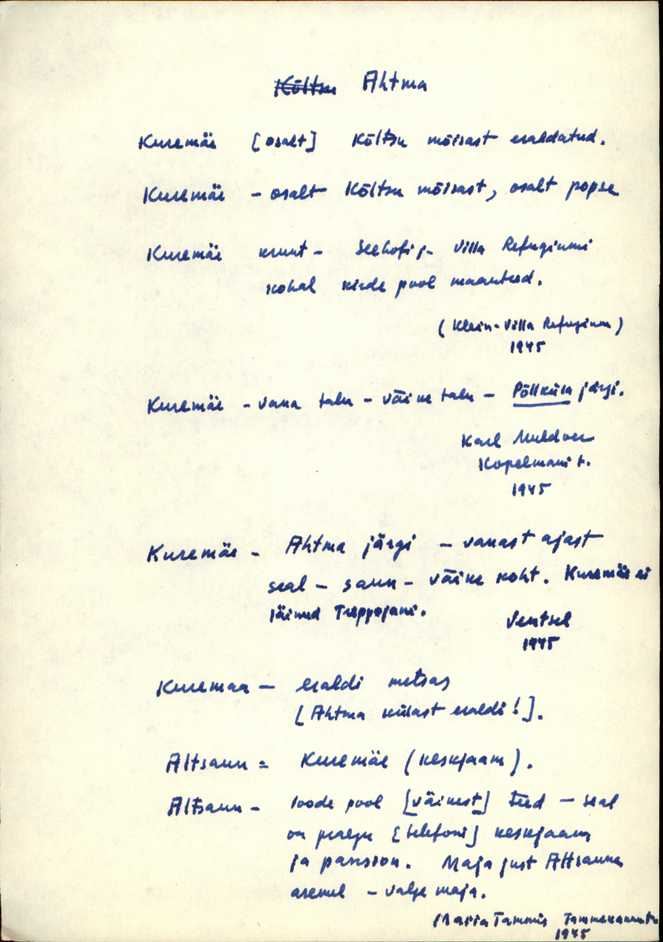 Kõltsu Ahtma
Kuremäe [osalt] Kõltsu mõisast eraldatud.
Kuremäe - osalt Kõltsu mõisast, osalt popse
Kuremäe krunt - Seehofi j. Villa Refugiumi
kohal kirde pool maanteed.
(Klein-Villa Refugium)
1945
Kuremäe - vana talu - väike talu - Põllküla järgi.
Karl Muldver
Kopelmani t.
1945
Kuremäe - Ahtma järgi - vanast ajast
seal - saun - väike koht. Kuremäe ei
läinud Treppojani.
Ventsel
1945
Kuremaa - eraldi metsas
[Ahtma külast eraldi!].
Altsaun = Kuremäe (keskjaam).
Altsaun - loode pool [väikest] teed - seal
on praegu [telefoni] keskjaam
ja pansion. Maja just Altsauna
asemel - valge maja.
Maria Tammis
1945